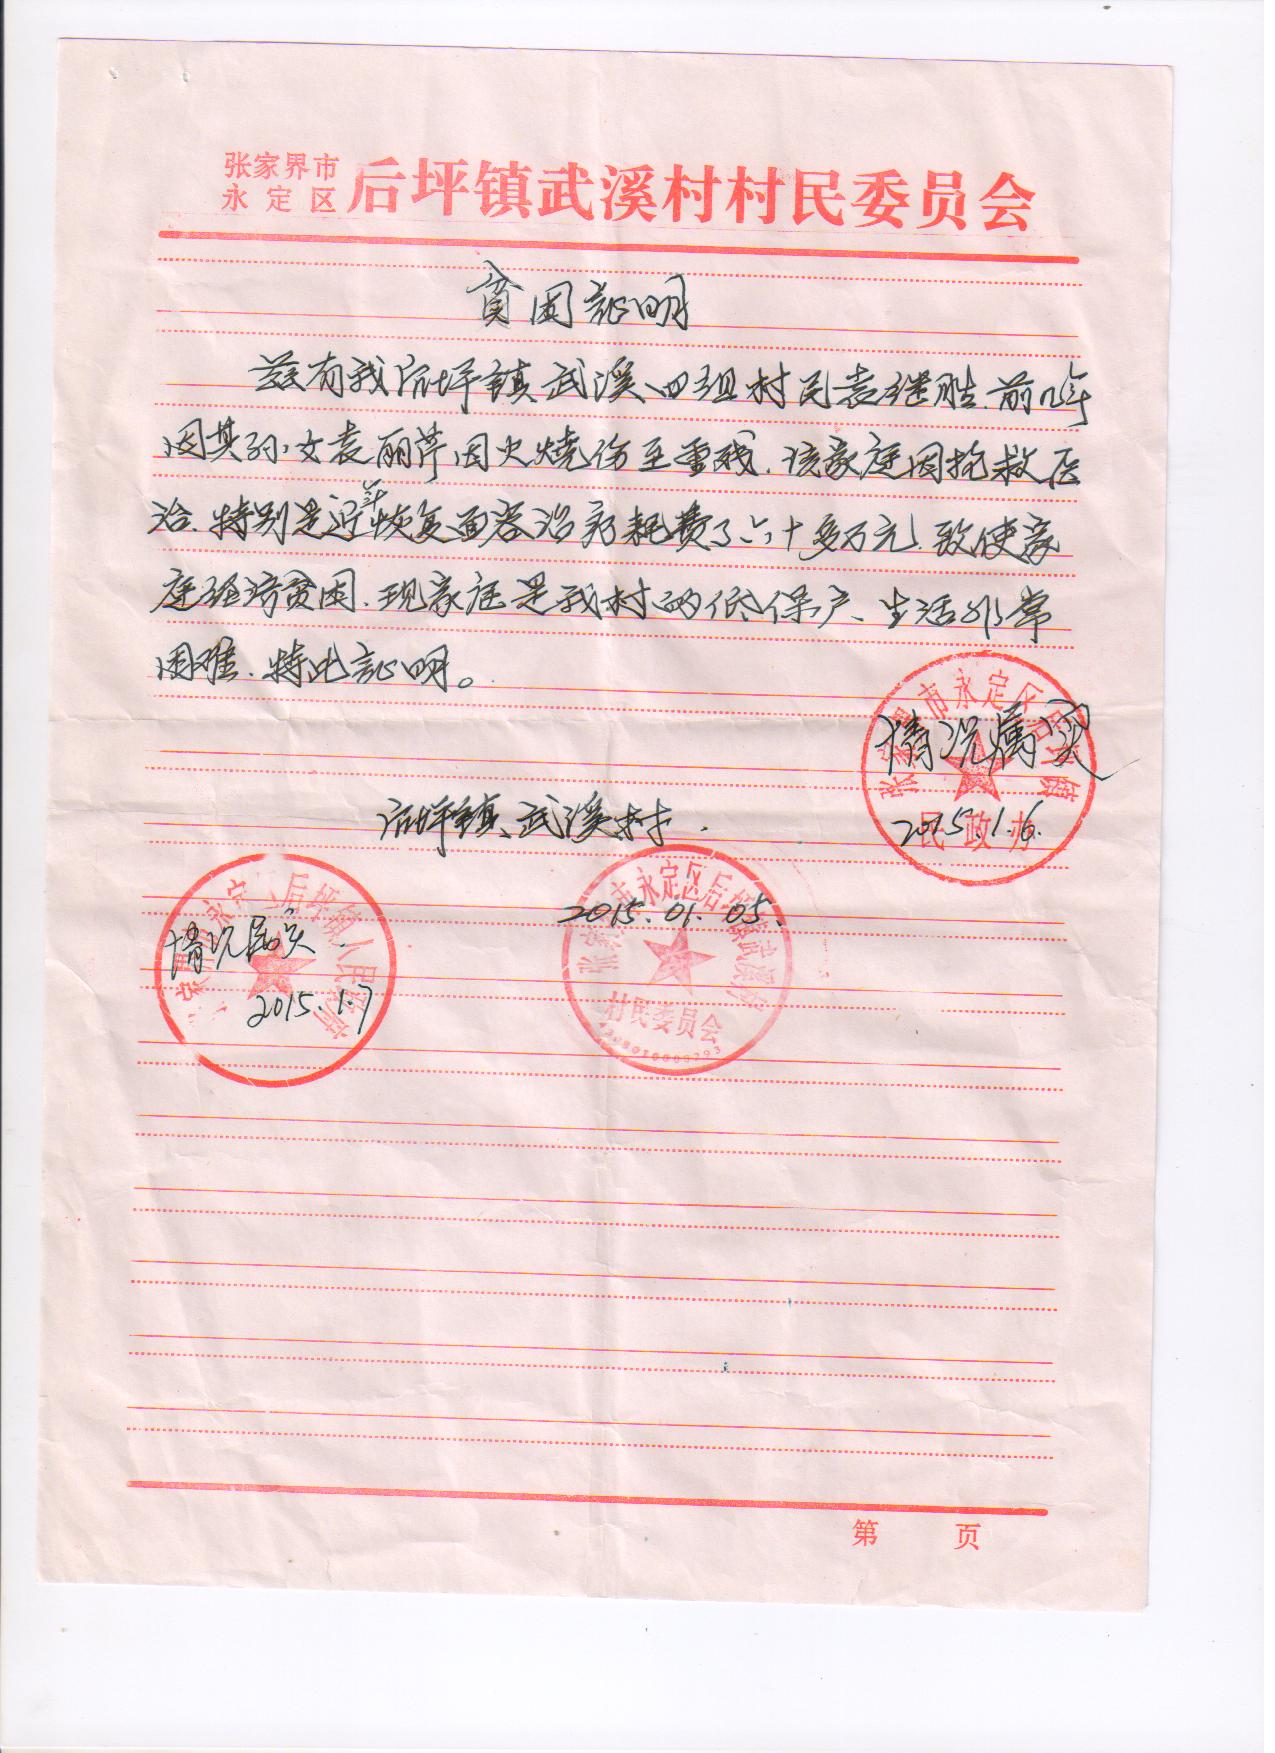 张家界市
永定区
后坪镇武溪村村民委员会
贫困证明
兹有我后坪镇武溪四组村民袁继胜、前几年
因其孙女袁丽芹因火烧伤至重残、该家庭因抢救医
治、特别是近年恢复面容治疗耗费了六十多万元、致使家
庭经济贫困、现家庭是我村的低保户、生活非常
困难、特此证明。
张家界市永定区后坪镇
情况属实
2015.1.6.
民政办
后坪镇、武溪村.
家界市永定区后坪镇人民政府
情况属实.
2015.1.7
张家界市永定区后坪镇武溪村
2015.01.05.
村民委员会
第 页